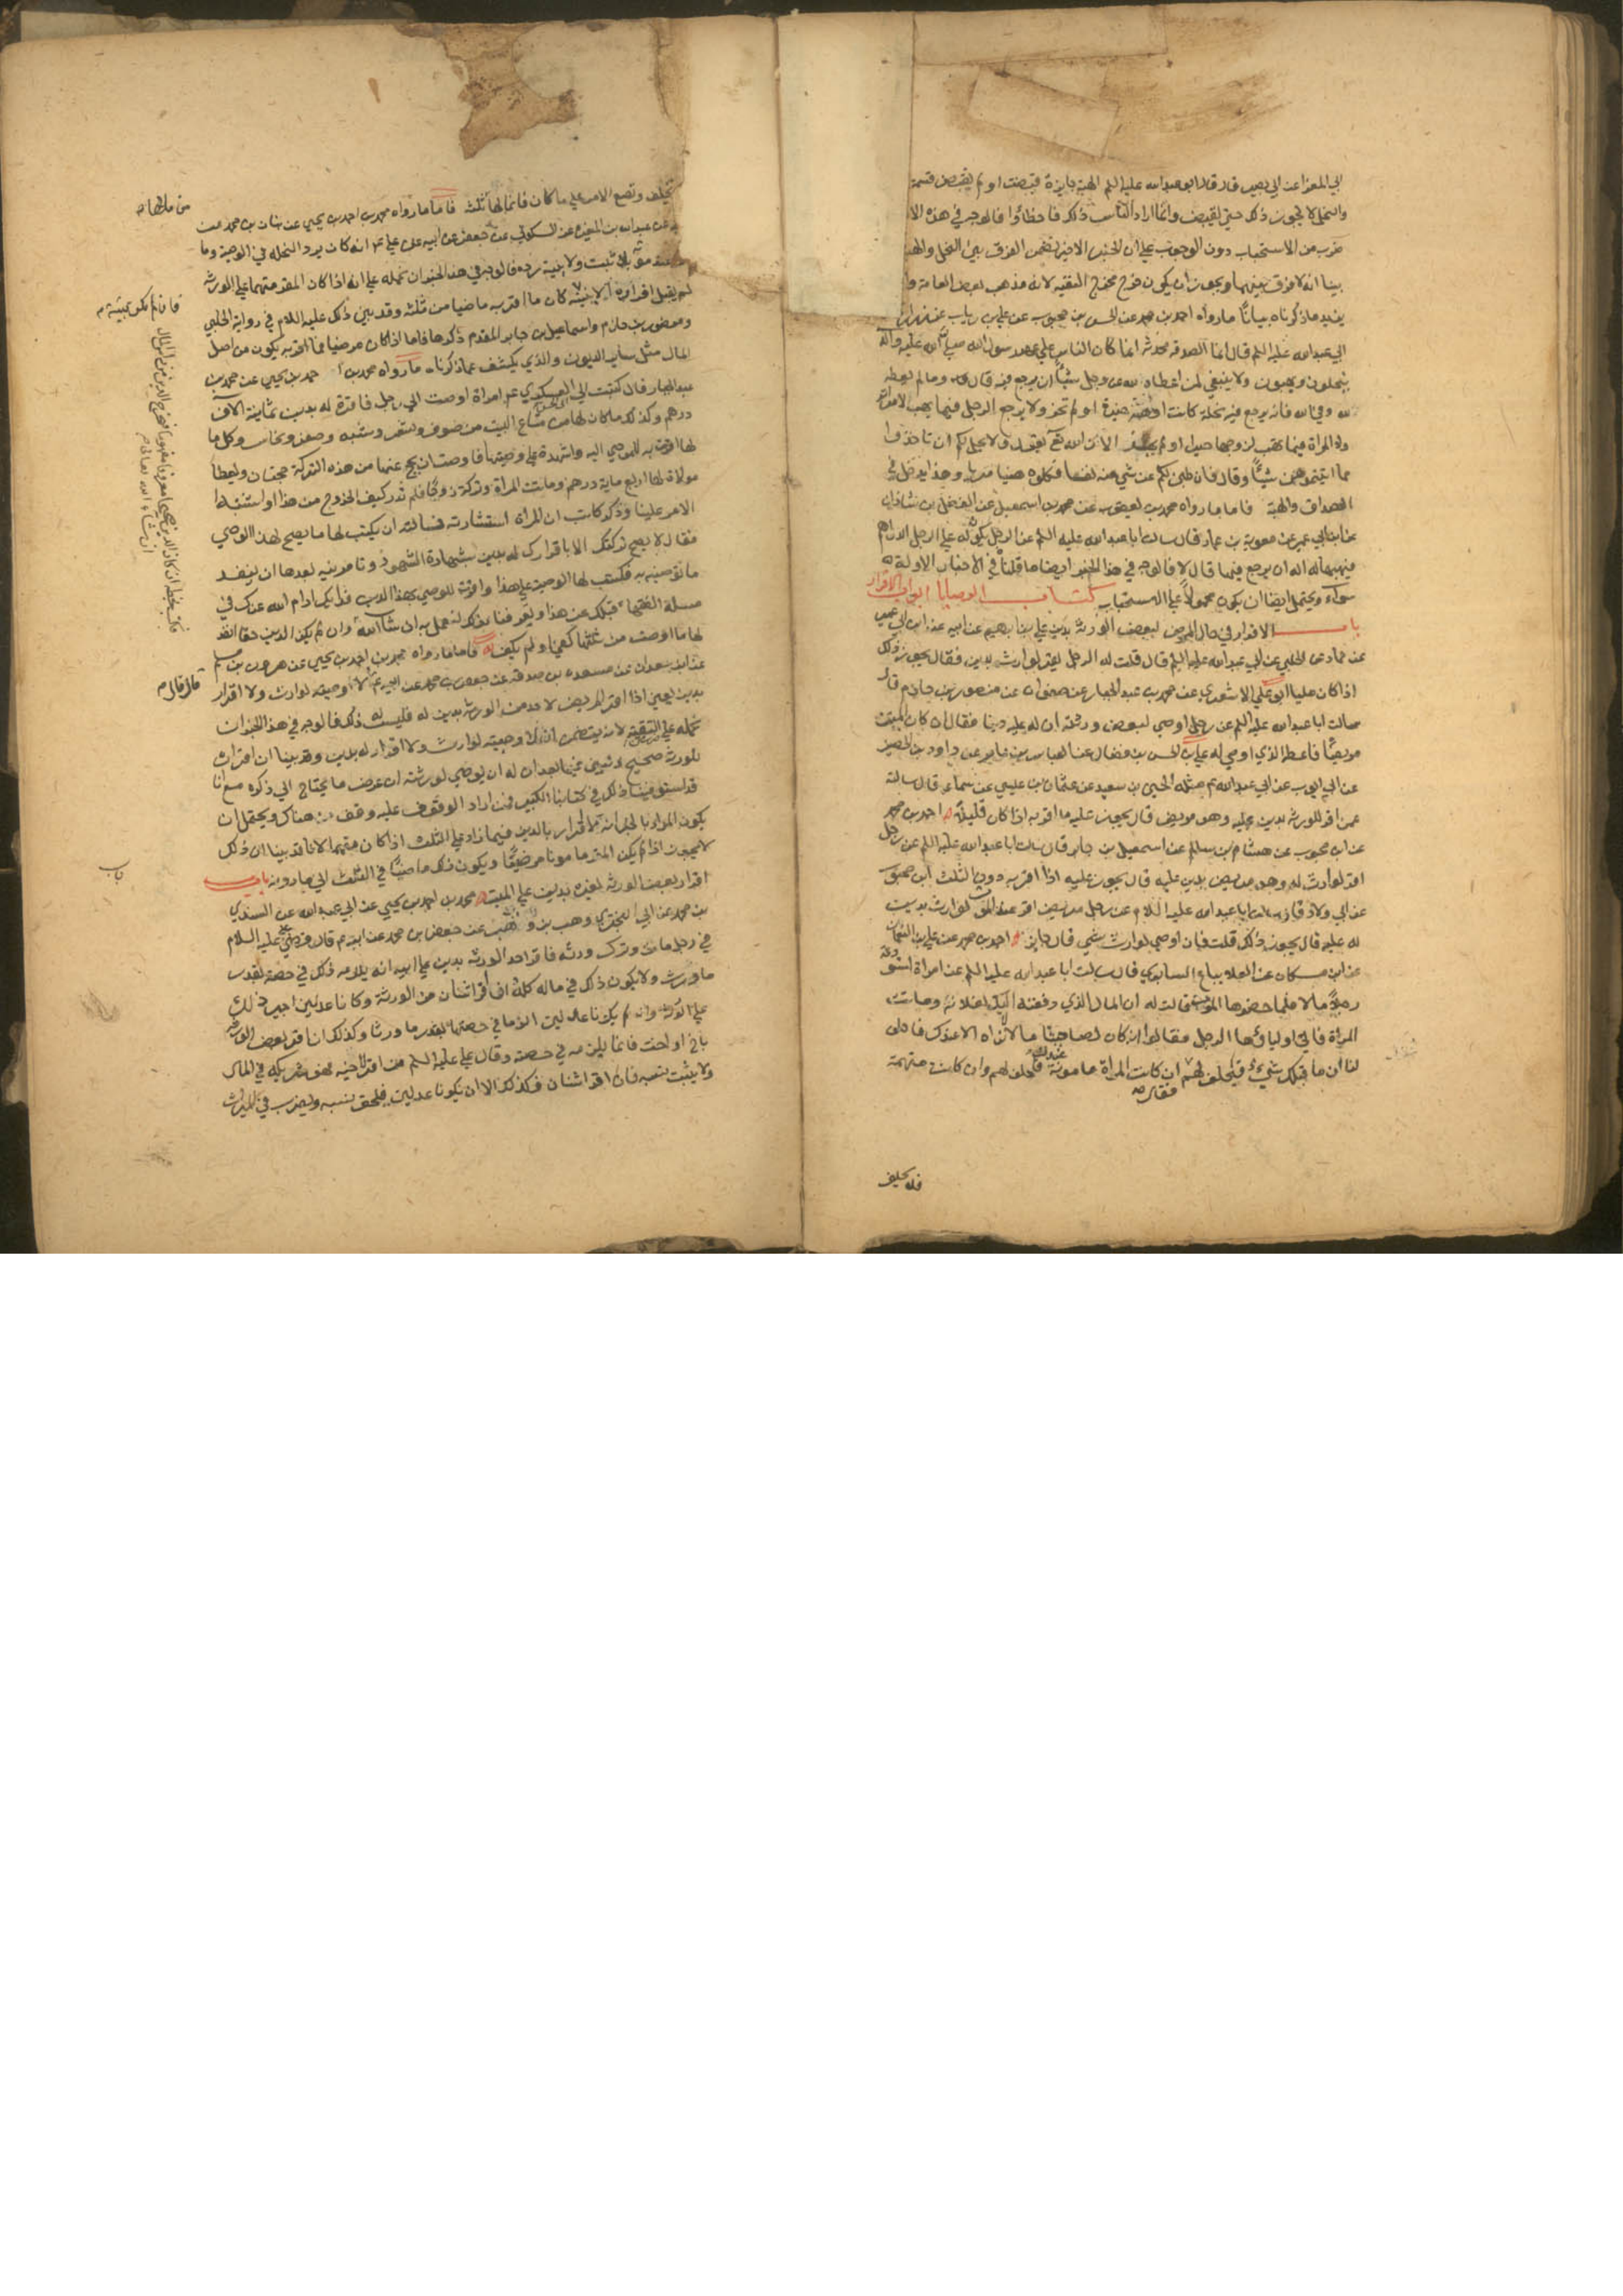 ابي المعزا عن ابي بصير قال قال ابو عبدالله عليه السلم الهبة جايزة قبضت او لم يقبض قسمت
والنحل لا يجوز ذلك حتي يقبض وانما اراد الناس ذلك فاخطاوا فالوجه في هذه الا
ضرب من الاستحباب دون الوجوب علي ان الخبر الاخير يتضمن الفرق بين النحل والهبة
بينا انه لا فرق بينهما ويجوز ان يكون خرج مخرج التقيه لان مذهب بعض العامة وا
يزيد ما ذكرناه بيانا ما رواه احمد بن محمد عن الحسن بن محبوب عن علي بن رياب عن زرارة
ابي عبدالله عليه السلم قال انما الصدقه محدثه انما كان الناس علي عهد رسول الله صلي الله عليه وآله
ينحلون ويهبون ولا ينبغي لمن اعطاه لله عز وجل شيئا ان يرجع فيه قال وما لم يعطه
لله وفي الله فانه يرجع فيه نحلة كانت او هبة حيزت او لم تحز ولا يرجع الرجل فيما يهب لامراته
ولا المراة فيما تهب لزوجها حيز او لم يحز الان الله تع يقول ولا يحل لكم ان تاخذوا
مما اتيتموهن شيئا وقال فان طبن لكم عن شي منه نفسا فكلوه هنيا مريا وهذا يدخل في
الصداق والهبة فاما ما رواه محمد بن يعقوب عن محمد بن اسمعيل عن الفضل بن شاذان
عن ابن ابي عمير عن معوية بن عمار قال سالت ابا عبد الله عليه السلم عن الرجل يكون له علي الرجل الدراهم
فيهبها له اله ان يرجع فيها قال لا فالوجه في هذا الخبر ايضا ما قلناه في الاخبار الاولة
سواء ويحتمل ايضا ان يكون محمولا علي الاستحباب كتاب الوصايا ابواب الاقرار
باب الاقرار في حال المرض لبعض الورثة بدين علي بن ابرهيم عن ابيه عن ابن ابي عمير
عن حماد عن الحلبي عن ابي عبدالله عليه السلم قال قلت له الرجل يقر لوارث بدين فقال يجوز ذلك
اذا كان مليا ابو علي الاشعري عن محمد بن عبد الجبار عن صفوان عن منصور بن حازم قال
سالت ابا عبدالله عليه السلم عن رجل اوصي لبعض ورثته ان له عليه دينا فقال ان كان الميت
مرضيا فاعطه الذي اوصي له علي بن الحسن بن فضال عن العباس بن عامر عن داود بن الحصين
عن ابي ايوب عن ابي عبدالله ع مثله الحسين بن سعيد عن عثمان بن عيسي عن سماعه قال سالته
عمن اقر للورثه بدين عليه وهو مريض قال يجوز عليه ما اقر به اذا كان قليلا احمد بن محمد
عن ابن محبوب عن هشام بن سالم عن اسمعيل بن جابر قال سالت ابا عبدالله عليه السلم عن رجل
اقر لوارث له وهو مريض بدين عليه قال يجوز عليه اذا اقر به دون الثلث ابن محبوب
عن ابي ولاد قال سالت ابا عبدالله عليه السلام عن رجل مريض اقر عند الموت لوارث بدين
له عليه قال يجوز ذلك قلت فان اوصي لوارث بشي قال جايز احمد بن محمد عن علي بن النعمان
عن ابن مسكان عن العلا بياع السابري قال سالت ابا عبدالله عليه السلم عن امراة استودعت
رجلا مالا فلما حضرها الموت قالت له ان المال الذي دفعته اليك لفلانة وماتت
المراة فاتي اولياؤها الرجل فقالوا انه كان لصاحبتنا مال لا نراه الا عندك فاحلف
لنا ان ما قبلك شيء فيحلف لهم ان كانت المراة مامونة عنده فيحلف لهم وان كانت متهمة
فقال
فلا يحلف
يحلف وتضع الامر علي ما كان فانما لها ثلث فاما ما رواه محمد بن احمد بن يحيي عن بنان بن محمد عن
عن عبدالله بن المغيره عن السكوني عن جعفر عن ابيه عن علي ع انه كان يرد النحله في الوصية وما
اقر به عند موته بلا ثبت ولا بينة رده فالوجه في هذا الخبر ان نحمله علي انه اذا كان المقر متهما علي الورثه
لم يقبل اقراره الا ببينة كان ما اقر به ماضيا من ثلثه وقد بين ذلك عليه السلام في رواية الحلبي
ومنصور بن حازم واسماعيل بن جابر المقدم ذكرها فاما اذا كان مرضيا فما اقر به يكون من اصل
المال مثل ساير الديون والذي يكشف عما ذكرناه ما رواه محمد بن احمد بن يحيي عن محمد بن
عبد الجبار قال كتبت الي العسكري ع امراة اوصت الي رجل فاقرت له بدين ثمانية الاف
درهم وكذلك ما كان لها من متاع البيت من صوف وشعر وشبه وصفر ونحاس وكل ما
لها اقرت به للموصي اليه واشهدت علي وصيتها فاوصت ان يحج عنها من هذه التركة حجتان ويعطا
مولاة لها اربع ماية درهم وماتت المراة وتركت زوجا فلم ندر كيف الخروج من هذا واشتبه
الامر علينا وذكر كاتب ان المراة استشارته فسالته ان يكتب لها ما يصح لهذا الوصي
فقال لا يصح تركتك الا باقرارك له بدين بشهادة الشهود وتامرينه بعدها ان ينفذ
ما توصينه به فكتب لها الوصية علي هذا واقرت للوصي بهذا الدين فرايك ادام الله عزك في
مسلة الفقهاء قبلك عن هذا وتعرفنا بذلك لنعمل به ان شا الله وان لم يكن الدين حقا انفذ
لها ما اوصت من ثلثها كفي او لم يكف فاما ما رواه محمد بن احمد بن يحيي عن هرون بن مسلم
عن ابن سعدان عن مسعده بن صدقه عن جعفر بن محمد عن ابيه ع لا وصيه لوارث ولا اقرار
بدين يعني اذا اقر المريض لاحد من الورثه بدين له فليس له ذلك فالوجه في هذا الخبر ان
نحمله علي التقيه لانه يتضمن ان لا وصيه لوارث ولا اقرار له بدين وقد بينا ان اقراره
للورثة صحيح ونبين فيما بعد ان له ان يوصي لورثته ان عرض ما يحتاج الي ذكره مع انا
قد استوفينا ذلك في كتابنا الكبير فمن اراد الوقوف عليه وقف من هناك ويحتمل ان
يكون المراد بالخبر انه لا اقرار بالدين فيما زاد علي الثلث اذا كان متهما لانا قد بينا ان ذلك
لا يجوز اذا لم يكن المقر مامونا مرضيا ويكون ذلك ماضيا في الثلث الي ما دونه باب
اقرار بعض الورثه لغيره بدين علي الميت محمد بن احمد بن يحيي عن ابي عبدالله عن السندي
بن محمد عن ابي البختري وهب بن وهب عن جعفر بن محمد عن ابيه ع قال قضي علي عليه السلام
في رجل مات وترك ورثه فاقر احد الورثه بدين علي ابيه انه يلزمه ذلك في حصته بقدر
ما ورث ولا يكون ذلك في ماله كله فان اقر اثنان من الورثة وكانا عدلين اجيز ذلك
علي الورثه وان لم يكونا عدلين الزما في حصتهما بقدر ما ورثا وكذلك ان اقر بعض الورثه
باخ او اخت فانما يلزمه في حصته وقال علي عليه السلم من اقر لاخيه فهو شريكه في المال
ولا يثبت نسبه فان اقر اثنان فكذلك الا ان يكونا عدلين فيلحق بنسبه ويضرب في الميراث
من مالها ص
فان لم يكن ببينة
فكتب بخطه ان كان الدين صحيحا معروفا مفهوما فيخرج الدين من راس المال
ان شاء الله تعالي
قال قال
باب